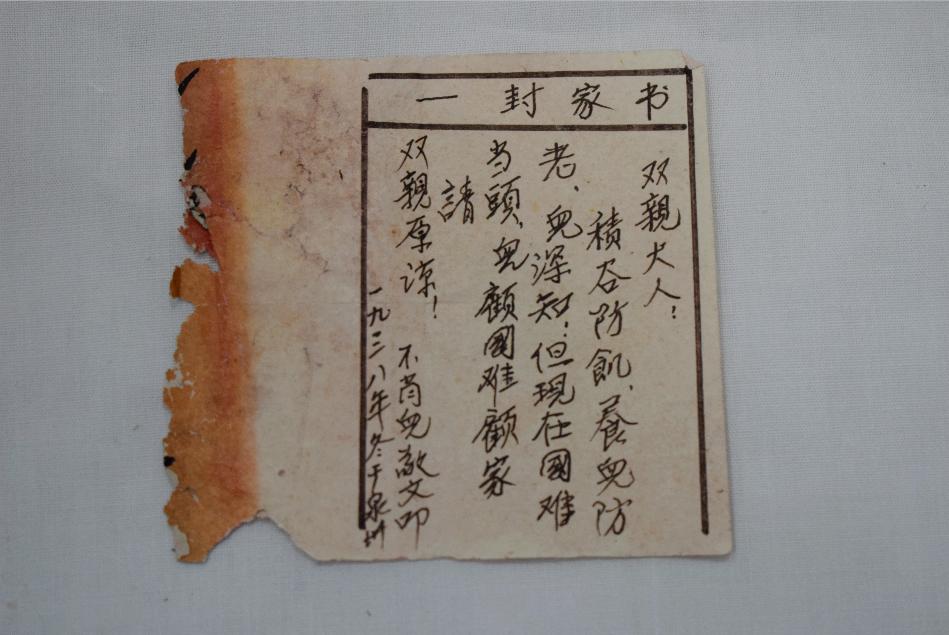 一封家书
双親大人:
積谷防飢、養兒防
老、兒深知;但現在國难
当頭、兒顧國难顧家
請
双親原谅! 不肖兒文叩
一九三八年冬于泉州